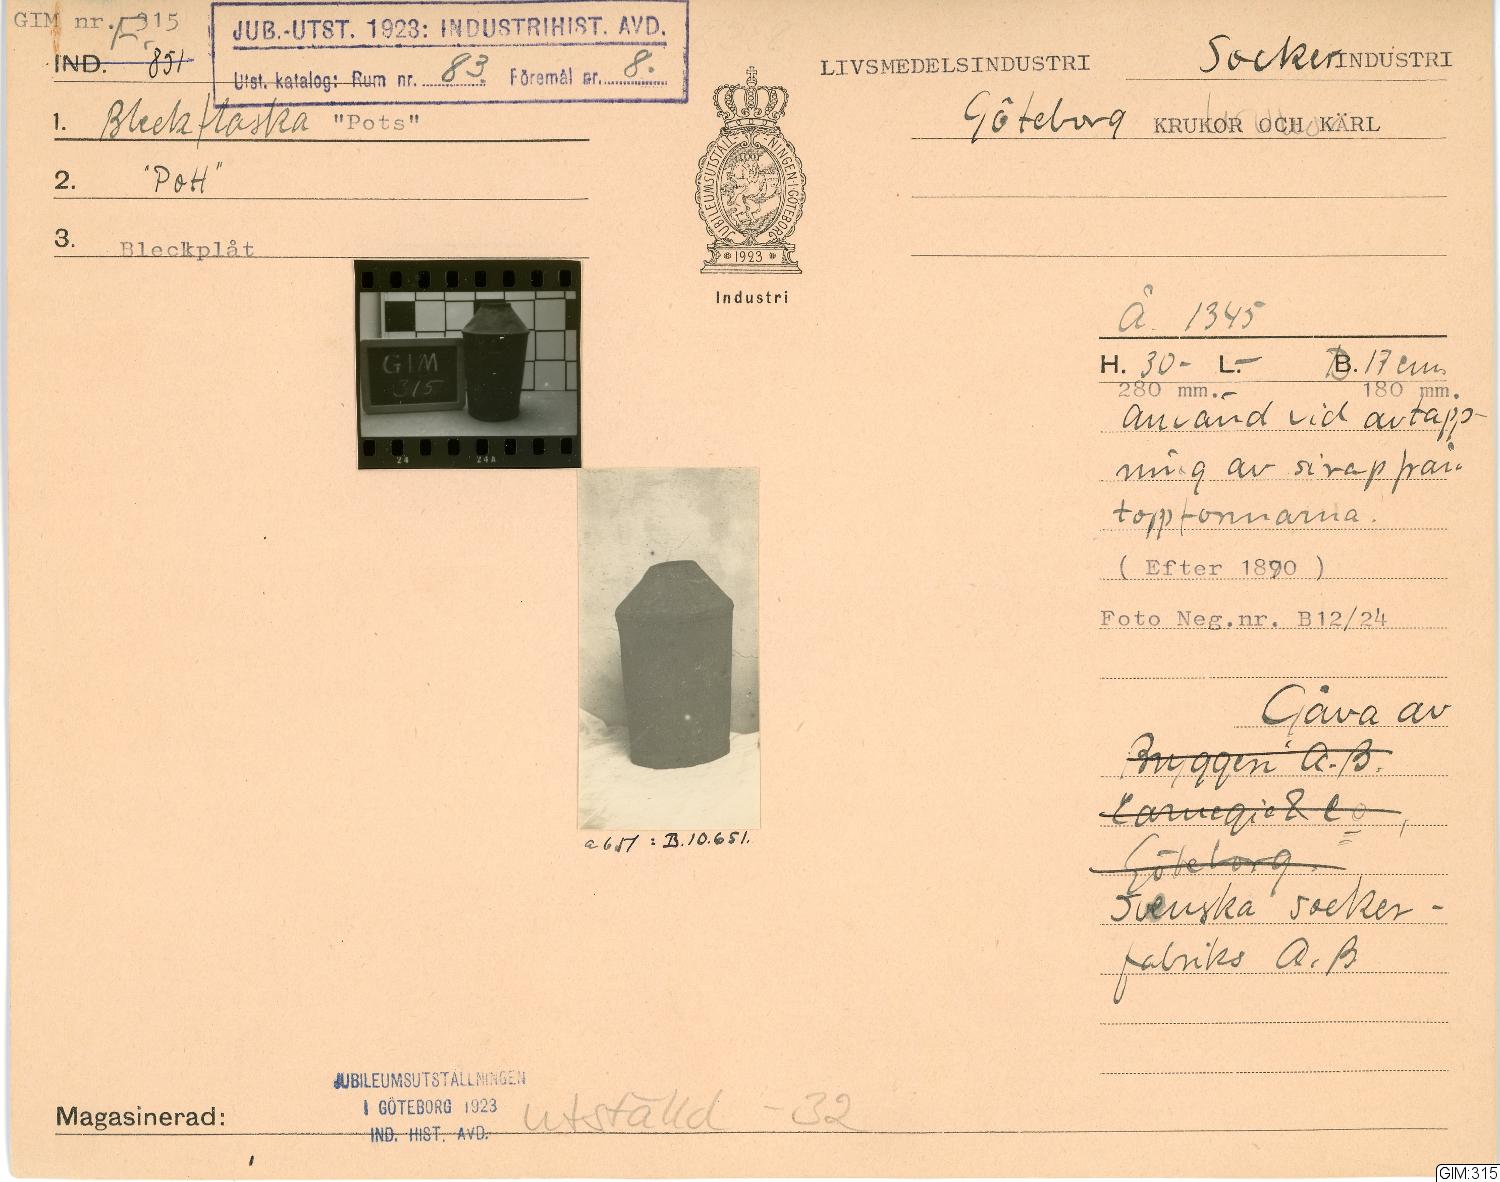 GIM nr. 315
F.
IND. 851
JUB.-UTST. 1923: INDUSTRIHIST. AVD.
Utst. katalog: Rum nr. 83 Föremål nr. 8.
LIVSMEDELSINDUSTRI
SockerINDUSTRI
1. Bleckflaska "Pots"
Göteborg KRUKOR OCH KÄRL
2. "Pott"
3. Bleckplåt
JUBILEUMSUTSTÄLLNINGEN I GÖTEBORG
1923
Industri
GIM
315
24 24A
Å. 1345
H. 30- L.- B. 17 cm
280 mm. 180 mm.
Använd vid avtapp-
ning av sirap från
toppformarna.
( Efter 1890 )
Foto Neg.nr. B12/24
Gåva av
Bryggeri A.B.
Carnegie & Co,
Göteborg.
Svenska socker-
fabriks A.B
a 651 : B.10.651.
JUBILEUMSUTSTÄLLNINGEN
I GÖTEBORG 1923
IND. HIST. AVD.
utställd - 32
Magasinerad:
GIM:315